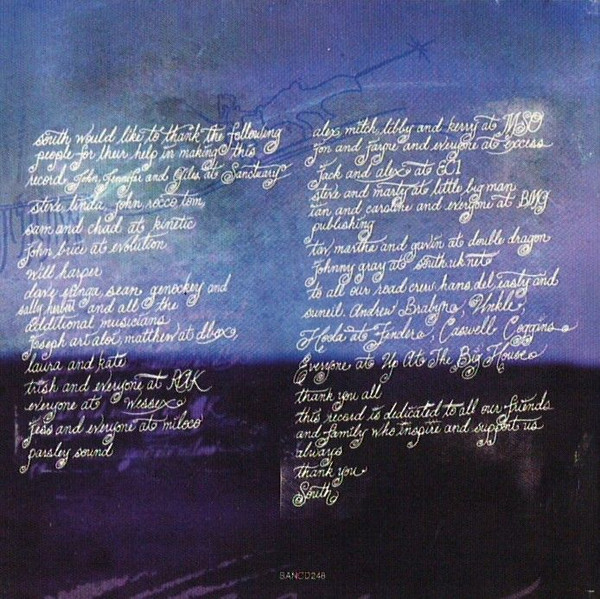 south would like to thank the following
people for their help in making this
record John, Jennifer and Giles at Sanctuary
steve linda, john rocco tom,
sam and chad at kinetic
john brice at evolution
will harper
dave eringa, sean genockey and
sally herbert and all the
additional musicians
joseph art aloi, matthew at dbox,
laura and kate
trish and everyone at RAK
everyone at Wessex
jess and everyone at miloco
parsley sound
alex mitch, libby and kerry at MSO
Jon and Fayne and everyone at excess
Jack and alex at EC1
steve and marty at little big man
ian and caroline and everyone at BMG
publishing
tav, maxine and gavin at double dragon
Johnny gray at south.uk.net
to all our road crew hans, del, easty and
suneil. Andrew Brabyn, Unkle,
Hoola at Fender, Caswell Coggins
Everyone at Up At The Big House
thank you all
this record is dedicated to all our friends
and family who inspire and support us
always
thank you
South
SANCD246